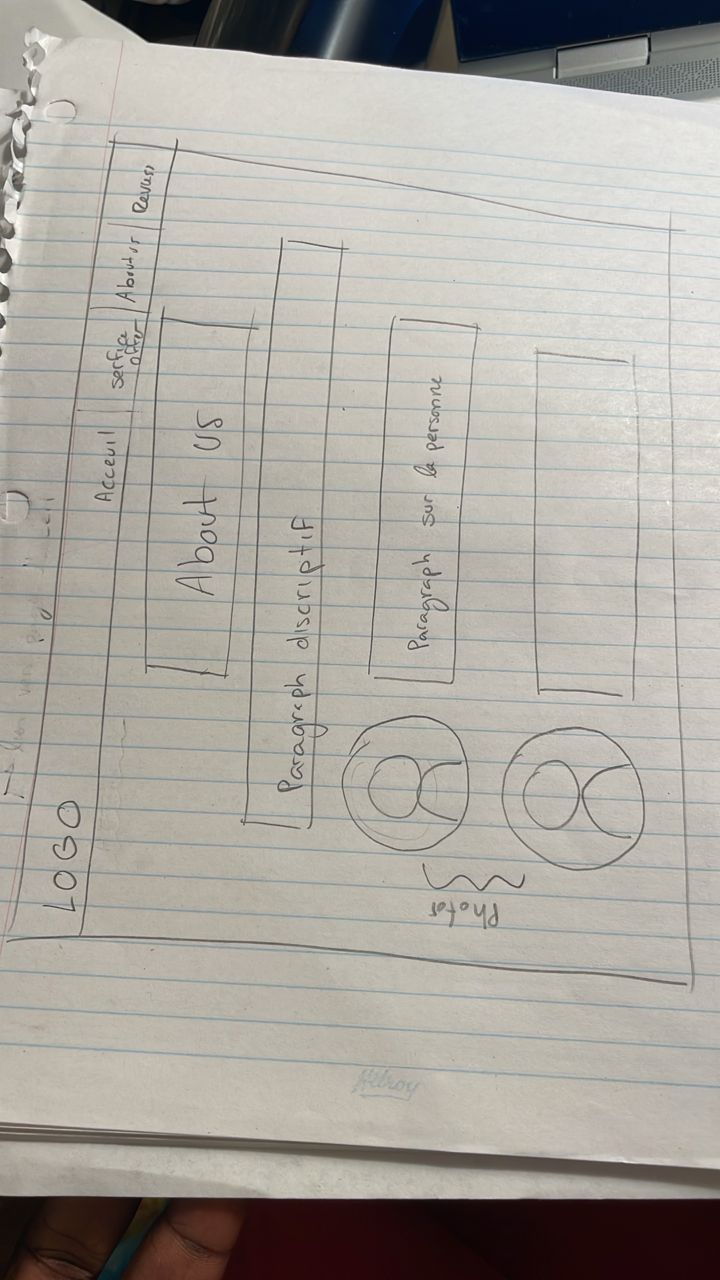 LOGO
Acceuil
Serfice
offer
About us
About us
Paragraph discriptif
Paragraph sur la personne
Photos
Hilroy